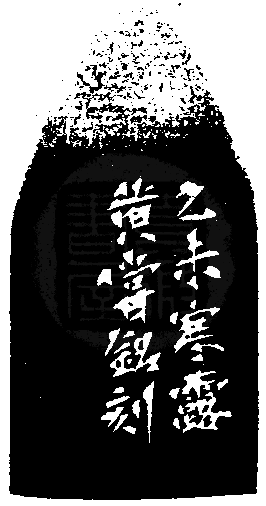 乙未寒露
黄嘗銘刻